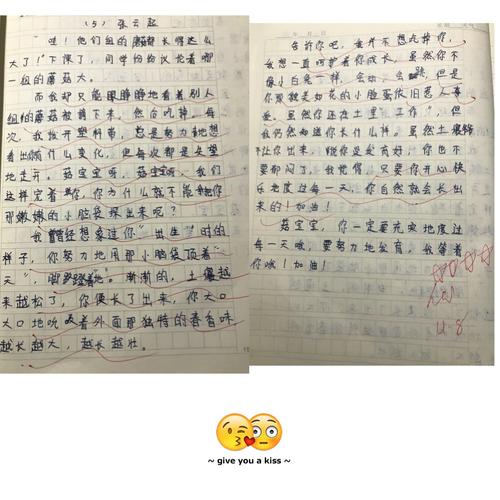 (5) 张云起
“哇!他们组的蘑菇长得这么
大了!”下课了,同学纷纷议论着哪
一组的蘑菇大。
而我却只能眼睁睁地看着别人
组的蘑菇被剪下来,然后吃掉。每
次,我拨开塑料带,总是努力地想
看出有什么变化,但每次都是失望
地走开。菇宝宝呀,菇宝宝呀,我们
这样宠着你,你为什么就不能把你
那嫩嫩的小脸袋探出来呢?
我曾经想象过你“出生”时的
样子,你努力地用那小脑袋顶着“
天”,脚蹬着地。渐渐的,土壤越
来越松了,你便长了出来,你大口
大口地吮着外面那独特的香香味
越长越大,越长越壮。
告诉你吧,我并不想吃掉你,
我想一直呵护着你成长。虽然你不
像小白兔一样,会动、会跳,但是
你那就是如花的小脸蛋依旧惹人喜
爱。虽然你还在土里“工作”,但
我仍然知道你长什么样。虽然土壤
不让你出来,
要郁闷了,我觉得,只要你开心快
乐地度过每一天,你自然就会长出
来的!加油!
菇宝宝,你一定要充实地度过
每一天哦,要努力地发育,我等着
你哦!加油!
4.8.
~ give you a kiss ~